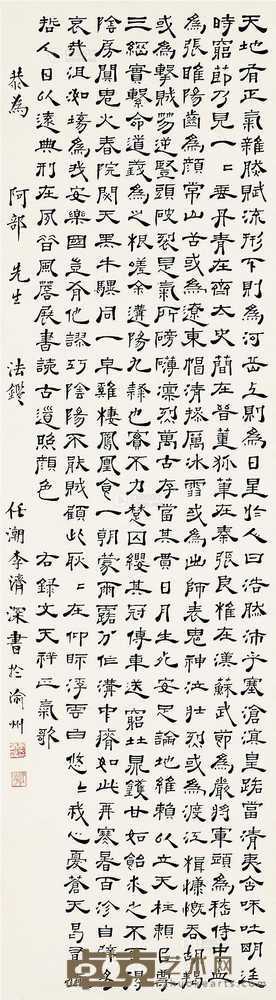 天地有正氣雜然賦流形下則為河岳上則為日星於人曰浩然沛乎塞滄溟皇路當清夷含味吐明廷
時窮節乃見一一垂丹青在齊太史簡在晉董狐筆在秦張良椎在漢蘇武節為嚴將軍頭為嵇侍中血
為張睢陽齒為顏常山舌或為遼東帽清操厲冰雪或為出師表鬼神泣壯烈或為渡江楫慷慨吞胡羯
或為擊賊笏逆豎頭破裂是氣所磅礴凜烈萬古存當其貫日月生死安足論地維賴以立天柱賴以尊
三綱實繫命道義為之根嗟余遘陽九隸也實不力楚囚纓其冠傳車送窮北鼎鑊甘如飴求之不可得
陰房闃鬼火春院閟天黑牛驥同一皁雞棲鳳凰食一朝蒙霧露分作溝中瘠如此再寒暑百沴自辟易
哀哉沮洳場為我安樂國豈有他謬巧陰陽不能賊顧此耿〻在仰眎浮雲白悠〻我心憂蒼天曷有極
哲人日以遠典刑在夙昔風簷展書讀古道照顏色 右錄文天祥正氣歌
恭為 阿部 先生 法鑒 任潮李濟深書於渝州